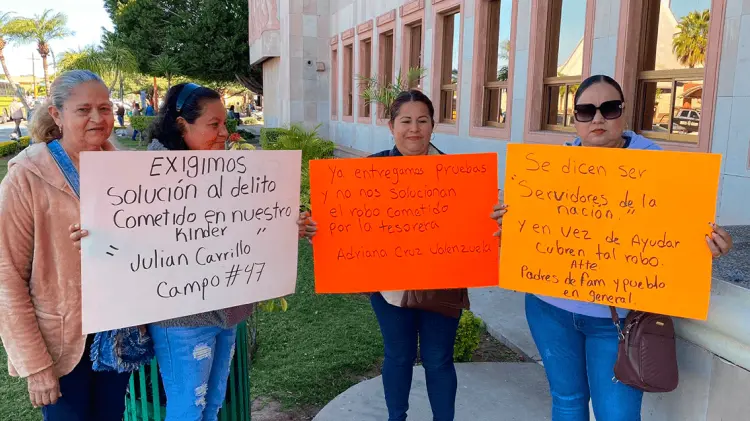 EXIGIMOS
SOLUCIÓN Al delito
Cometido en nuestro
KINDER
"Julian Carrillo"
Campo #47
Ya entregamos Pruebas
y no nos solucionan
el robo cometido
por la tesorera
Adriana Cruz Valenzuela
Se dicen ser
"Servidores de la
nación."
y en vez de Ayudar
Cubren tal robo.
Atte
Padres de Fam y pueblo
en general.